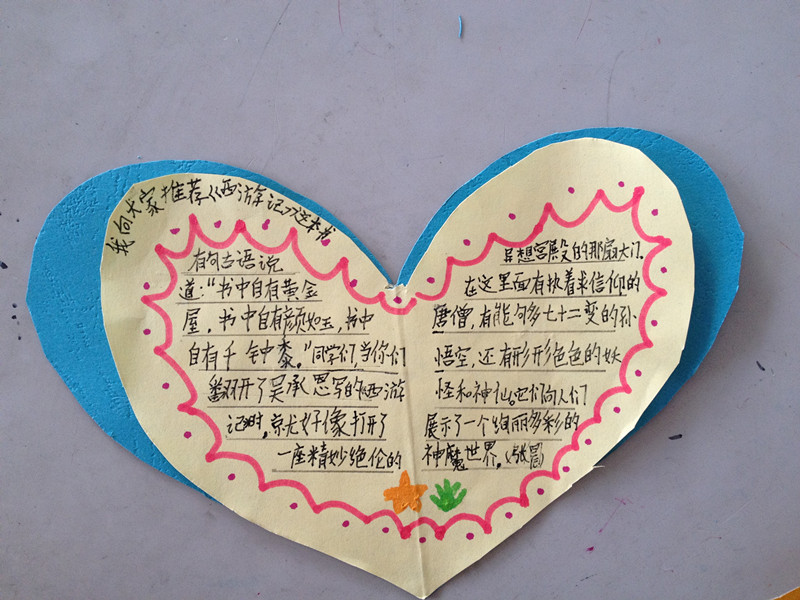 我向大家推荐《西游记》这本书
有句古语说
道:“书中自有黄金
屋,书中自有颜如玉,书中
自有千钟黍。”同学们,当你们
翻开了吴承恩写的《西游
记》时,就好像打开了
一座精妙绝伦的
异想宫殿的那扇大门。
在这里面有执着求信仰的
唐僧,有能够多七十二变的孙
悟空,还有形形色色的妖
怪和神仙。它们向人们
展示了一个绚丽多彩的
神魔世界。